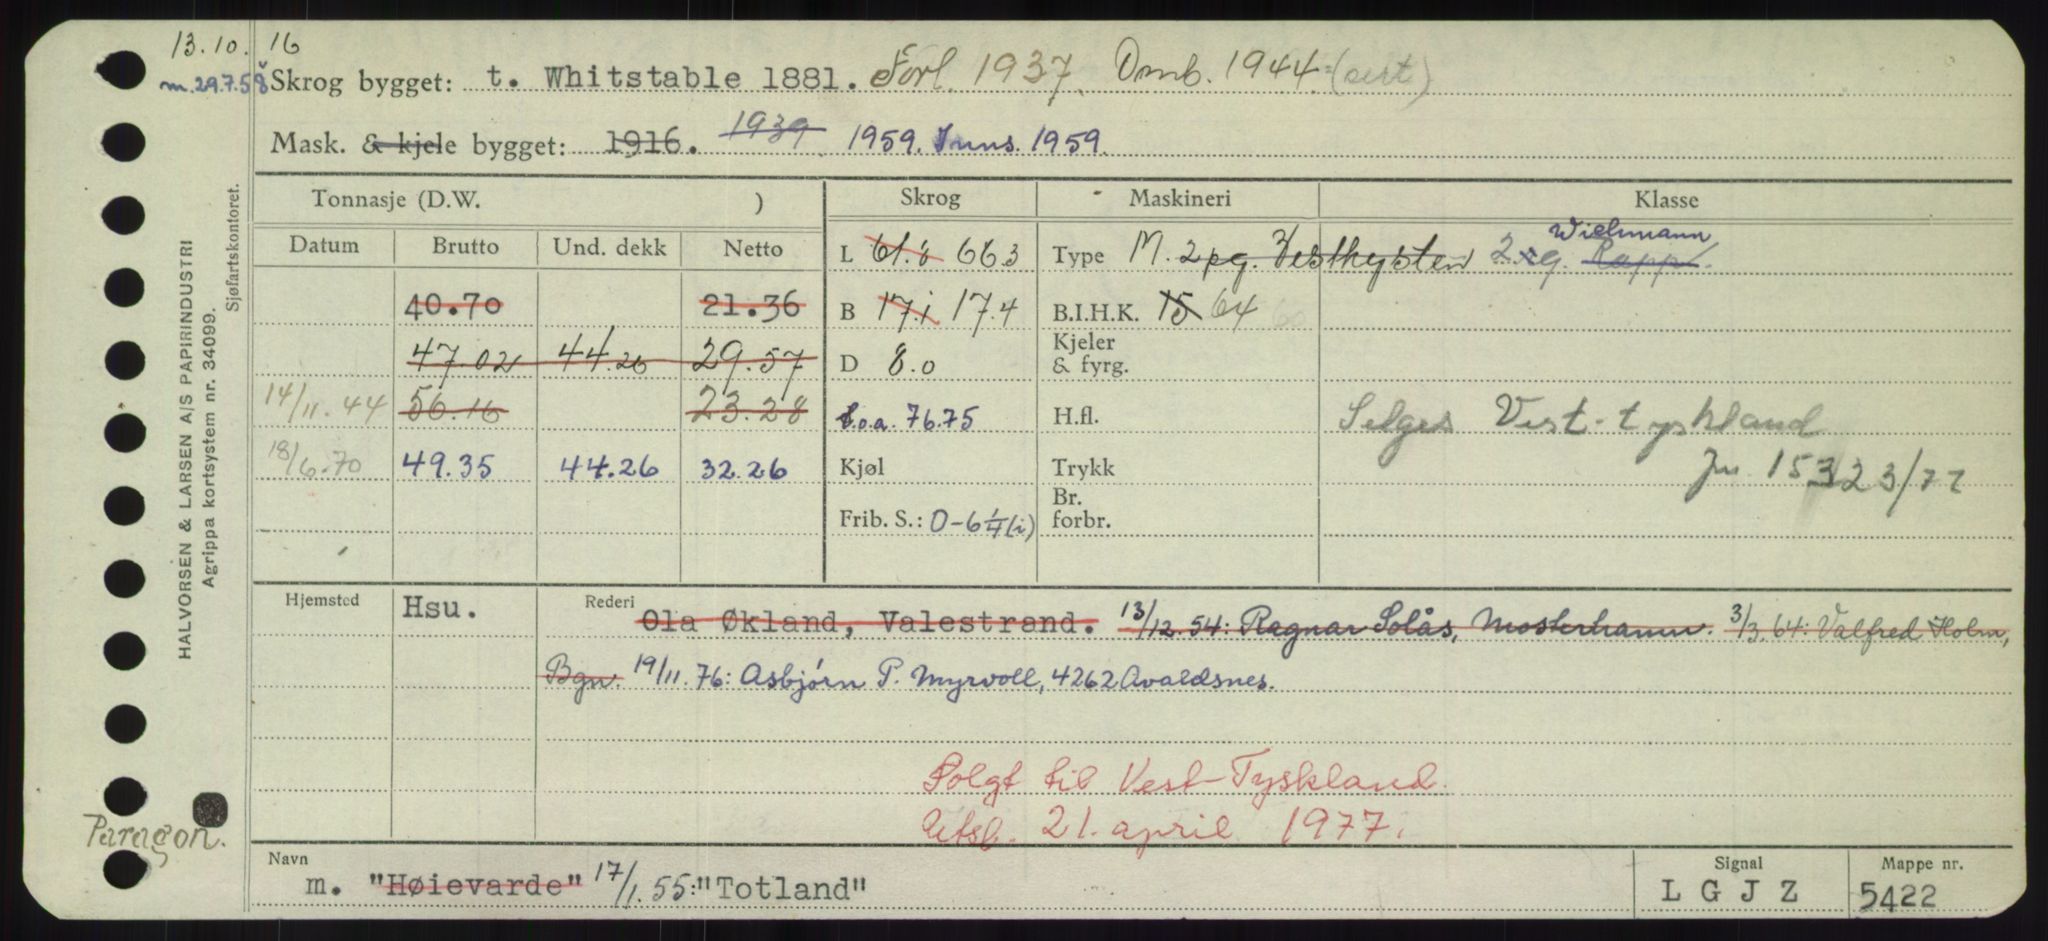 13.10. 16
m.29.7.58
Skrog bygget: t. Whitstable 1881. Forl. 1937. Omb. 1944. (sert)
Mask. & kjele bygget: 1916. 1939 1959. Inns. 1959.
Tonnasje (D.W. )
Skrog
Maskineri
Klasse
Datum Brutto Und. dekk Netto
40.70 21.36
47.02 44.26 29.57
14/11.44 56.16 23.28
18/6.70 49.35 44.26 32.26
L 61.8 66.3
B 17.1 17.4
D 8.0
L.o.a. 76.75
Kjøl
Frib. S.: 0-6 1/4 (i)
Type M. 2pg. Vestkysten 2.rg. Rapp. Wichmann
B.I.H.K. 15 64 60
Kjeler
& fyrg.
H.fl.
Trykk
Br.
forbr.
Selges Vest-tyskland
Jn. 15323/77
Hjemsted Hsu.
Rederi Ola Økland, Valestrand. 13/12.54: Ragnar Solås, Mosterhamn. 3/3.64: Valfred Holm,
Bgn. 19/11.76: Asbjørn P. Myrvoll, 4262 Avaldsnes.
Solgt til Vest-Tyskland.
Utsl. 21. april 1977.
Navn m. "Høievarde" 17/1.55: "Totland"
Signal L G J Z
Mappe nr. 5422
HALVORSEN & LARSEN A/S PAPIRINDUSTRI
Agrippa kortsystem nr. 34099.
Sjøfartskontoret.
Paragon.